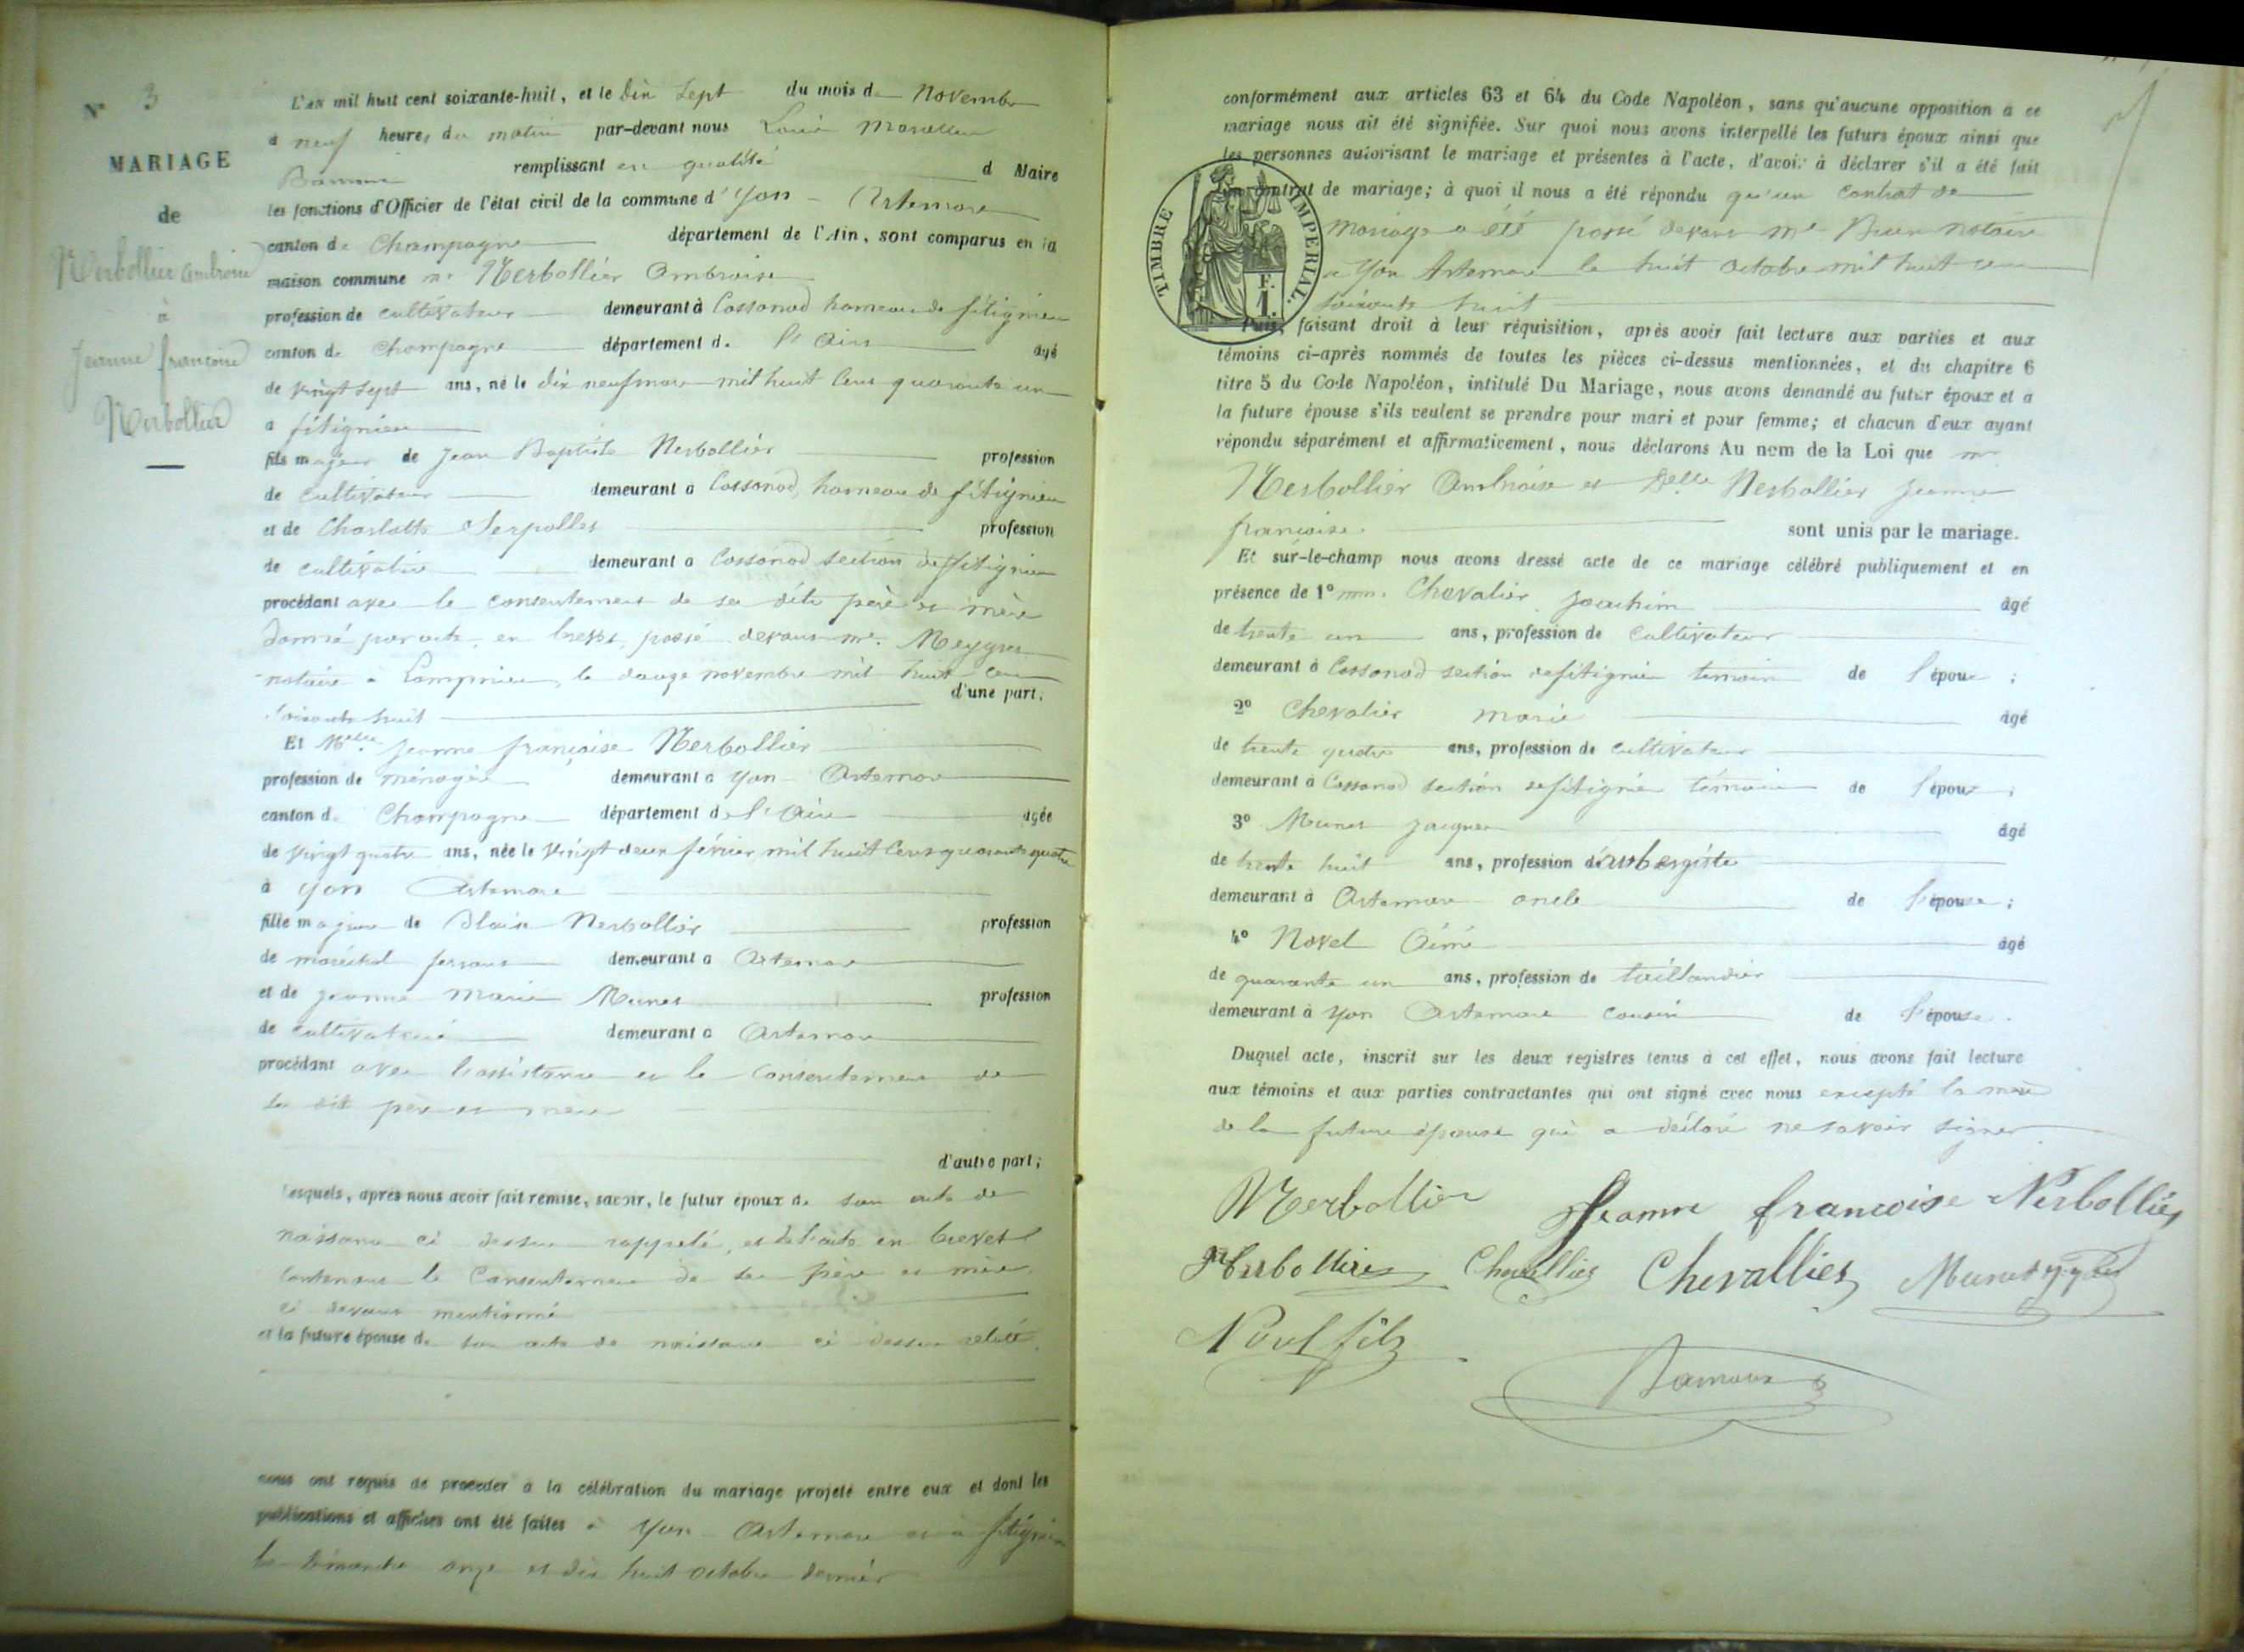 N° 3
MARIAGE
de
Nerbollier Ambroise
à
Jeanne françoise
Nerbollier
L'an mil huit cent soixante-huit, et le Dix Sept du mois de Novembre
à neuf heures du matin par-devant nous Louis
remplissant en qualité de Maire
les fonctions d'Officier de l'état civil de la commune d'Yon - Artemare
canton de Champagne département de l'Ain, sont comparus en la
maison commune mr Nerbollier Ambroise
profession de cultivateur demeurant à Cossonod hameau de fitignieu
canton de Champagne département de l'Ain âgé
de vingt sept ans, né le dix neuf mars mil huit cent quarante un
à fitignieu
fils majeur de Jean Baptiste Nerbollier profession
de cultivateur demeurant à Cossonod, hameau de fitignieu
et de Charlotte Serpollet profession
de cultivatrice demeurant à Cossonod section de fitignieu
procédant avec le consentement de ses dits père et mère
donné par acte en brevet, passé devant me.
notaire à Lompnieu, le douze novembre mil huit cent
d'une part;
soixante huit
Et Melle Jeanne françoise Nerbollier
profession de ménagère demeurant à Yon - Artemare
canton de Champagne département de l'Ain âgée
de vingt quatre ans, née le vingt deux février mil huit cent quarante quatre
à Yon Artemare
fille majeure de Blaise Nerbollier profession
de maréchal ferrant demeurant à Artemare
et de Jeanne Marie Munet profession
de cultivatrice demeurant à Artemare
procédant avec l'assistance et le consentement de
ses dit père et mère
d'autre part;
lesquels, après nous avoir fait remise, savoir, le futur époux de son acte de
naissance ci dessus rappelé, et de l'acte en brevet
contenant le consentement de ses père et mère
ci devant mentionné
et la future épouse de son acte de naissance ci dessus relaté
nous ont requis de procéder à la célébration du mariage projeté entre eux et dont les
publications et affiches ont été faites à Yon - Artemare et à fitignieu
les dimanche onze et dix huit octobre dernier
conformément aux articles 63 et 64 du Code Napoléon, sans qu'aucune opposition à ce
mariage nous ait été signifiée. Sur quoi nous avons interpellé les futurs époux ainsi que
les personnes autorisant le mariage et présentes à l'acte, d'avoir à déclarer s'il a été fait
un contrat de mariage; à quoi il nous a été répondu qu'un contrat de
mariage a été passé devant me notaire
à Yon Artemare le huit octobre mil huit cent
soixante huit
TIMBRE IMPERIAL.
F.
1.
Puis, faisant droit à leur réquisition, après avoir fait lecture aux parties et aux
témoins ci-après nommés de toutes les pièces ci-dessus mentionnées, et du chapitre 6
titre 5 du Code Napoléon, intitulé Du Mariage, nous avons demandé au futur époux et a
la future épouse s'ils veulent se prendre pour mari et pour femme; et chacun d'eux ayant
répondu séparément et affirmativement, nous déclarons Au nom de la Loi que mr
Nerbollier Ambroise et Delle Nerbollier Jeanne
françoise sont unis par le mariage.
Et sur-le-champ nous avons dressé acte de ce mariage célébré publiquement et en
présence de 1° mm. Chevalier Joachim âgé
de trente un ans, profession de cultivateur
demeurant à Cossonod section de fitignieu témoin de l'époux;
2° Chevalier marie âgé
de trente quatre ans, profession de cultivateur
demeurant à Cossonod section de fitignieu témoin de l'époux;
3° Munet Jacques âgé
de trente huit ans, profession d'aubergiste
demeurant à Artemare oncle de l'épouse;
4° Novel Aimé âgé
de quarante un ans, profession de taillandier
demeurant à Yon Artemare cousin de l'épouse.
Duquel acte, inscrit sur les deux registres tenus à cet effet, nous avons fait lecture
aux témoins et aux parties contractantes qui ont signé avec nous excepté la mère
de la future épouse qui a déclaré ne savoir signer
Nerbollier Jeanne francoise Nerbollier
Nerbollier Chevallier Chevallier Munet
Novel fils